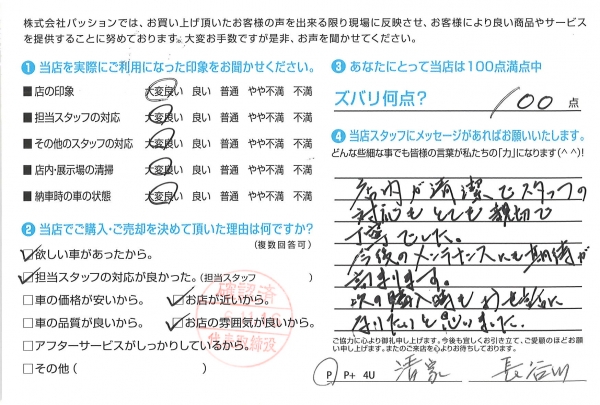 株式会社パッションでは、お買い上げ頂いたお客様の声を出来る限り現場に反映させ、お客様により良い商品やサービス
を提供することに努めております。大変お手数ですが是非、お声を聞かせてください。
❶ 当店を実際にご利用になった印象をお聞かせください。
■ 店の印象 大変良い 良い 普通 やや不満 不満
■ 担当スタッフの対応 大変良い 良い 普通 やや不満 不満
■ その他のスタッフの対応 大変良い 良い 普通 やや不満 不満
■ 店内・展示場の清掃 大変良い 良い 普通 やや不満 不満
■ 納車時の車の状態 大変良い 良い 普通 やや不満 不満
❷ 当店でご購入・ご売却を決めて頂いた理由は何ですか?
(複数回答可)
☑欲しい車があったから。
☑担当スタッフの対応が良かった。(担当スタッフ )
□車の価格が安いから。 ☑お店が近いから。
□車の品質が良いから。 ☑お店の雰囲気が良いから。
□アフターサービスがしっかりしているから。
□その他( )
確認済
代表取締役
❸ あなたにとって当店は100点満点中
ズバリ何点? 100 点
❹ 当店スタッフにメッセージがあればお願いいたします。
どんな些細な事でも皆様の言葉が私たちの「力」になります(^ ^)!
店内が清潔でスタッフの
対応もとても親切で
丁寧でした。
今後のメンテナンスにも期待が
高まります。
次の購入時もお世話に
なりたいと思いました。
ご協力に心より御礼申し上げます。今後も宜しくお引き立て、ご愛顧のほどお願
い申し上げます。またのご来店を心よりお待ちしております。
P P+ 4U 清家 長谷川